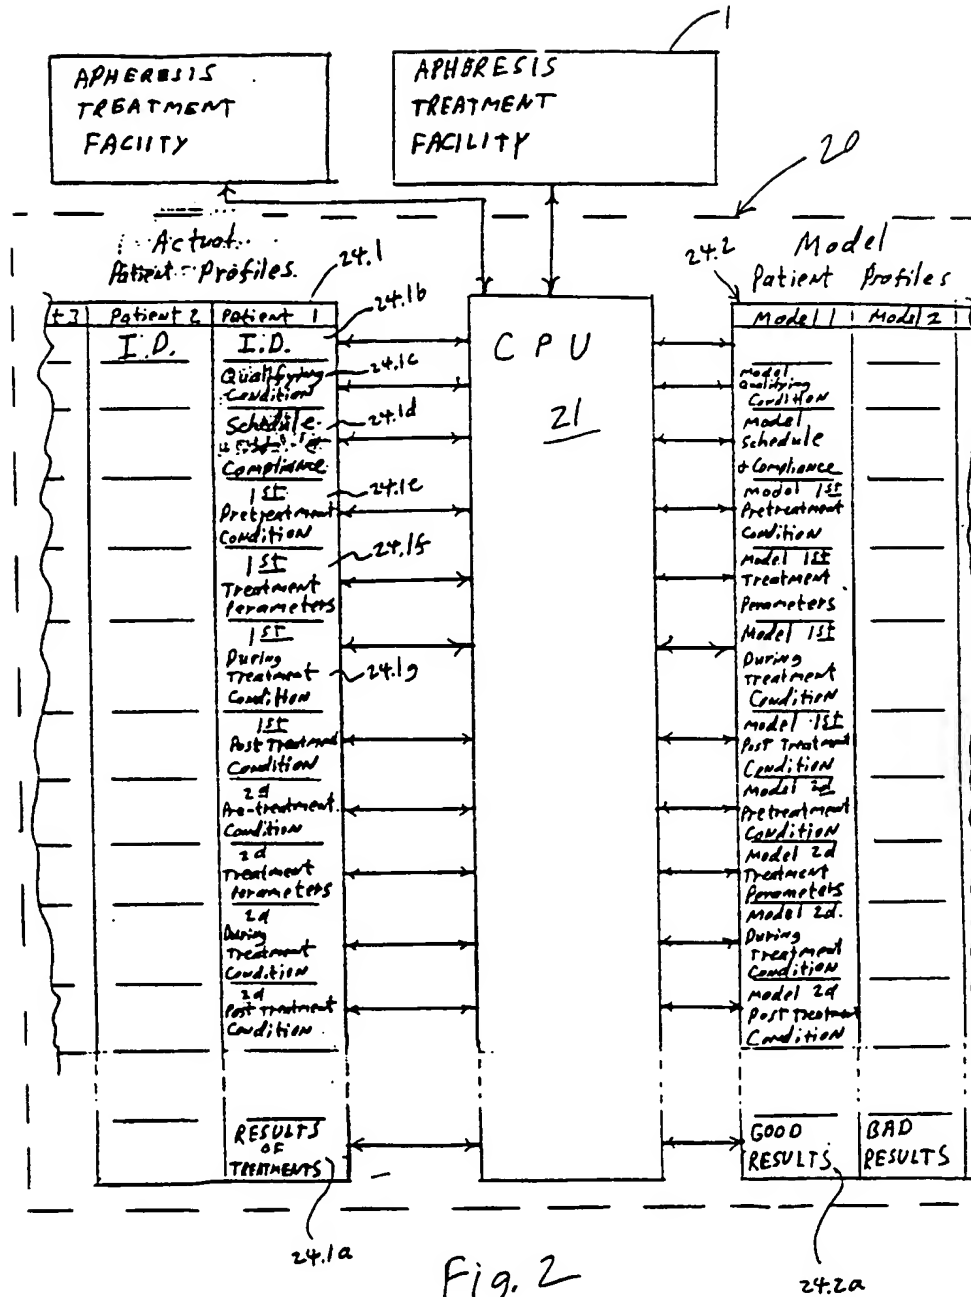 1
APHERESIS
TREATMENT
FACIITY
APHERESIS
TREATMENT
FACILITY
20
Actual
Patient Profiles
24.1
24.2
Model
Patient Profiles
t3
Patient 2
Patient 1
24.1b
I.D.
I.D.
Qualifying
Condition
24.1c
Schedule
24.1d
Compliance
1st
24.1e
Pretreatment
Condition
1st
24.1f
Treatment
Perameters
1st
During
Treatment
24.1g
Condition
1st
Post Treatment
Condition
2d
Pre-treatment
Condition
2d
Treatment
Perameters
2d
During
Treatment
Condition
2d
Post Treatment
Condition
RESULTS
OF
TREATMENTS
24.1a
CPU
21
Model 1
Model 2
Model
Qualifying
Condition
Model
Schedule
+ Compliance
Model 1st
Pretreatment
Condition
Model 1st
Treatment
Perameters
Model 1st
During
Treatment
Condition
Model 1st
Post Treatment
Condition
Model 2d
Pretreatment
Condition
Model 2d
Treatment
Perameters
Model 2d.
During
Treatment
Condition
Model 2d
Post Treatment
Condition
GOOD
RESULTS
BAD
RESULTS
24.2a
Fig. 2